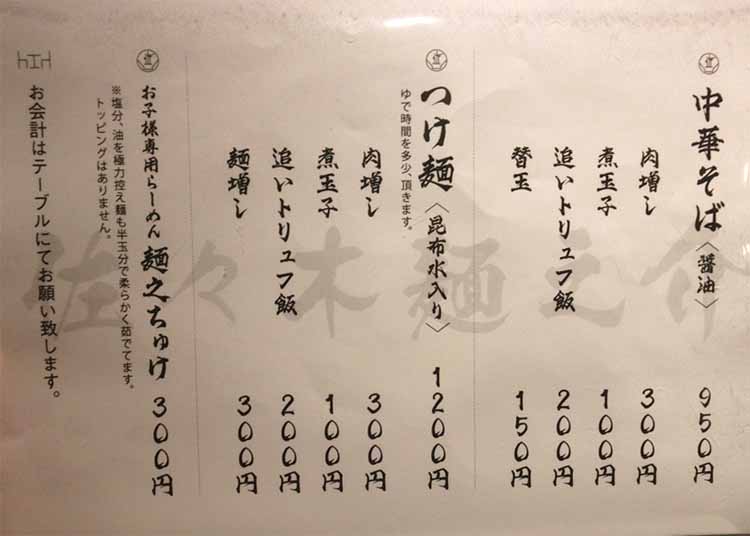 中華そば〈醤油〉 950円
肉増し 300円
煮玉子 100円
追いトリュフ飯 200円
替玉 150円
つけ麺〈昆布水入り〉 1200円
ゆで時間を多少、頂きます。
肉増し 300円
煮玉子 100円
追いトリュフ飯 200円
麺増し 300円
お子様専用らーめん 麺之ちゅけ 300円
※塩分、油を極力控え麺も半玉分で柔らかく茹でてます。
トッピングはありません。
お会計はテーブルにてお願い致します。
佐々木麺之介